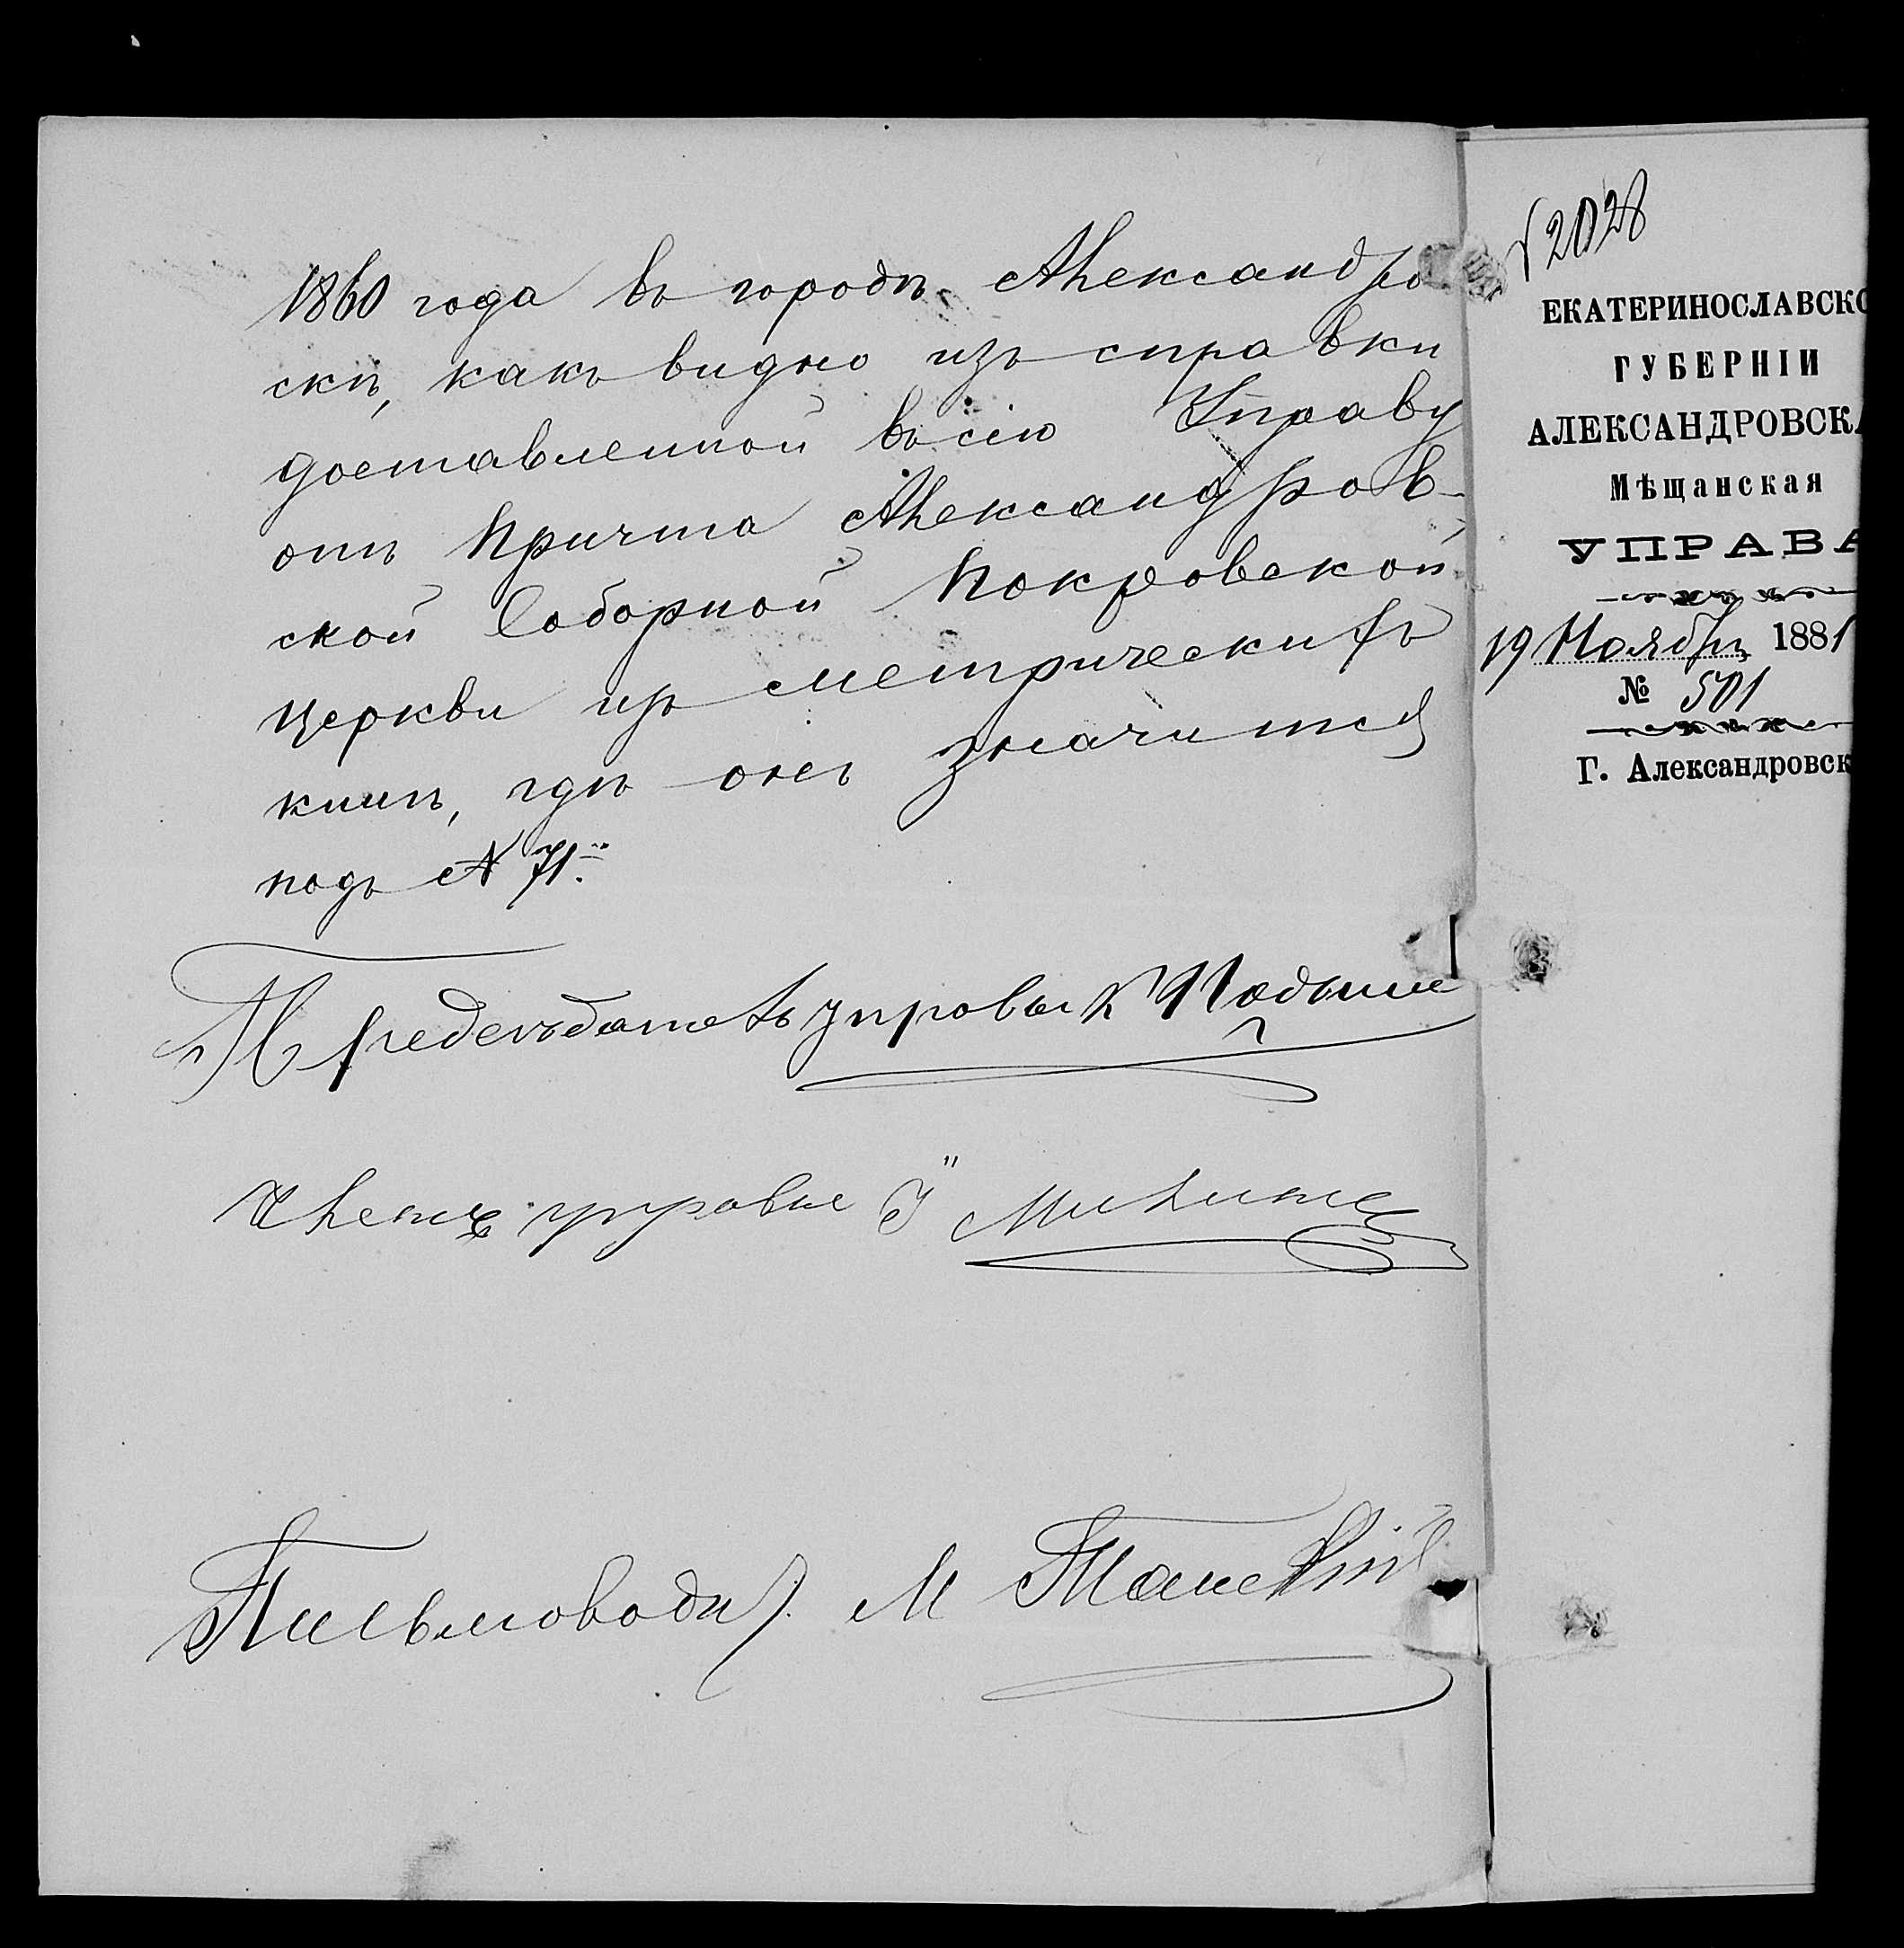 1860 года въ городѣ Александро
скѣ, какъ видно изъ справки
доставленной въ сію Управу
отъ Причта Александров-
ской Соборной Покровской
церкви изъ метрическихъ
книгъ, гдѣ онъ значится
подъ № 71.
Предсѣдатель управы К
Членъ управы І
Письмоводи. М
№ 2028
ЕКАТЕРИНОСЛАВСКО
ГУБЕРНІИ
АЛЕКСАНДРОВСКА
Мѣщанская
УПРАВА
19 Ноября 1881
№ 501
Г. Александровск